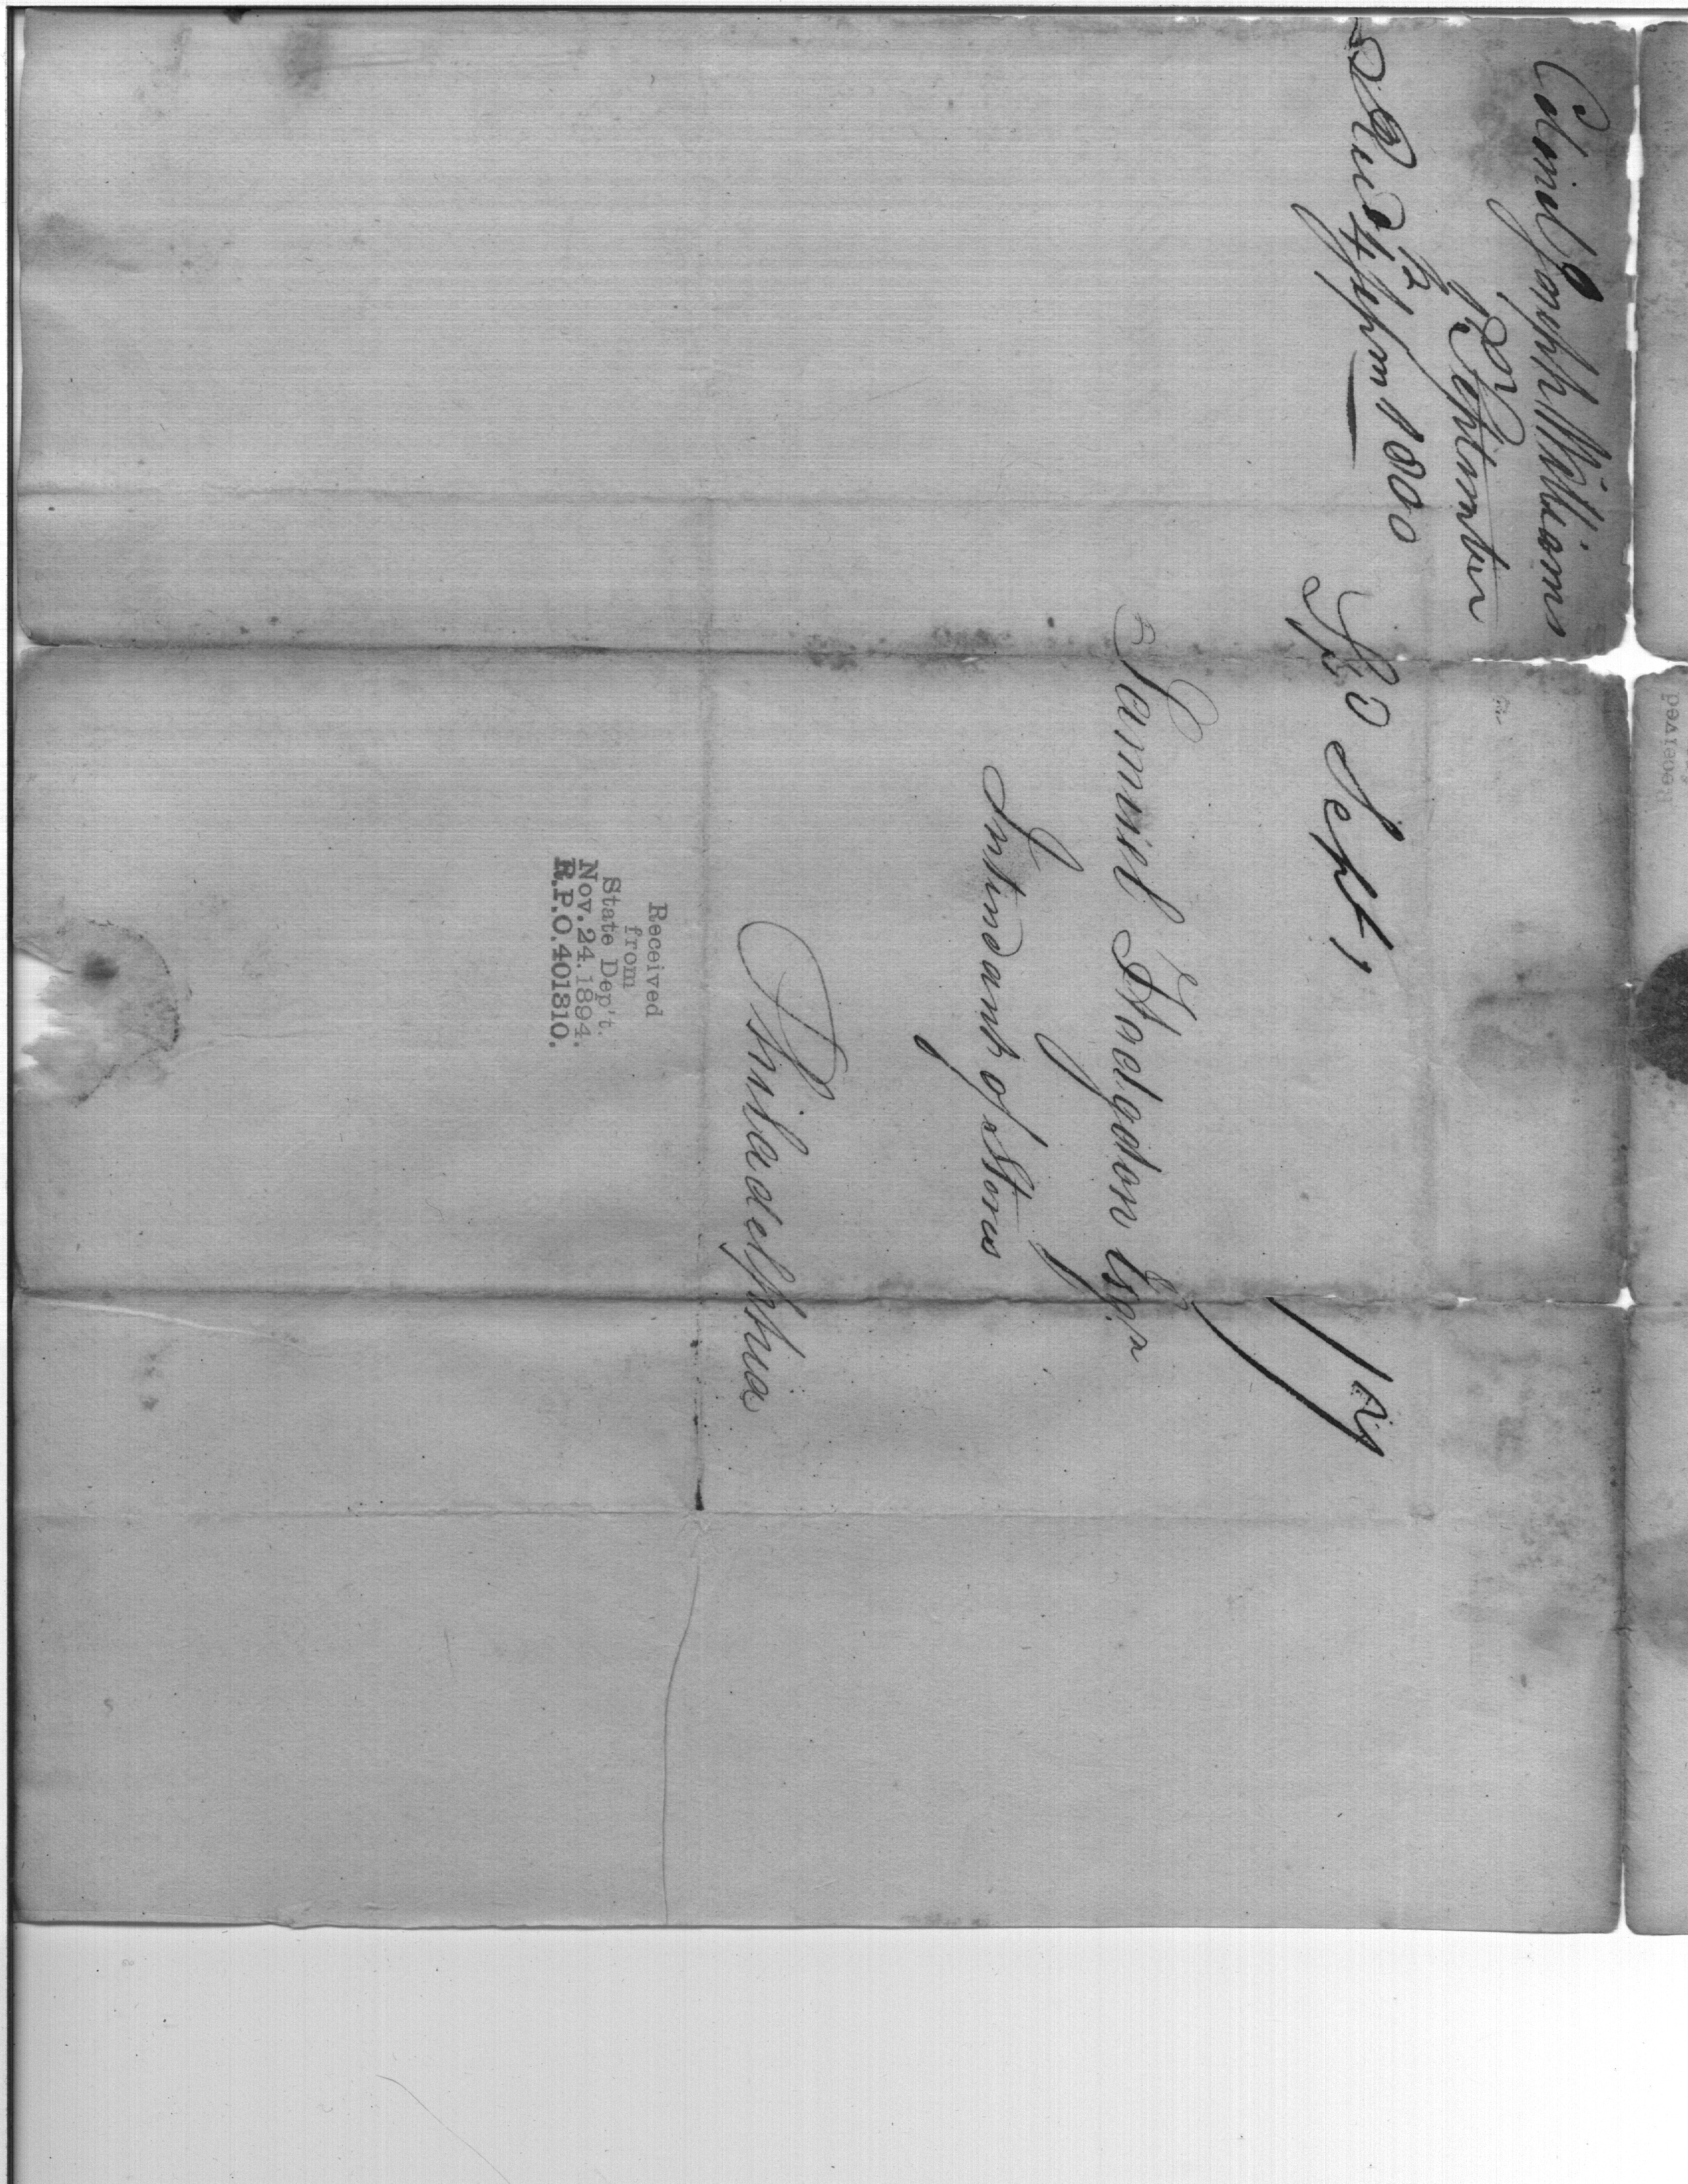 Colonel Joseph Williams
1st September
Recd 4 Septm 1800
Sp'd Sept,
Samuel Hodgdon Esqr
Intendant of Stores
Philadelphia
Received
from
State Dep't.
Nov. 24. 1894.
R.P.O. 401310.
Received